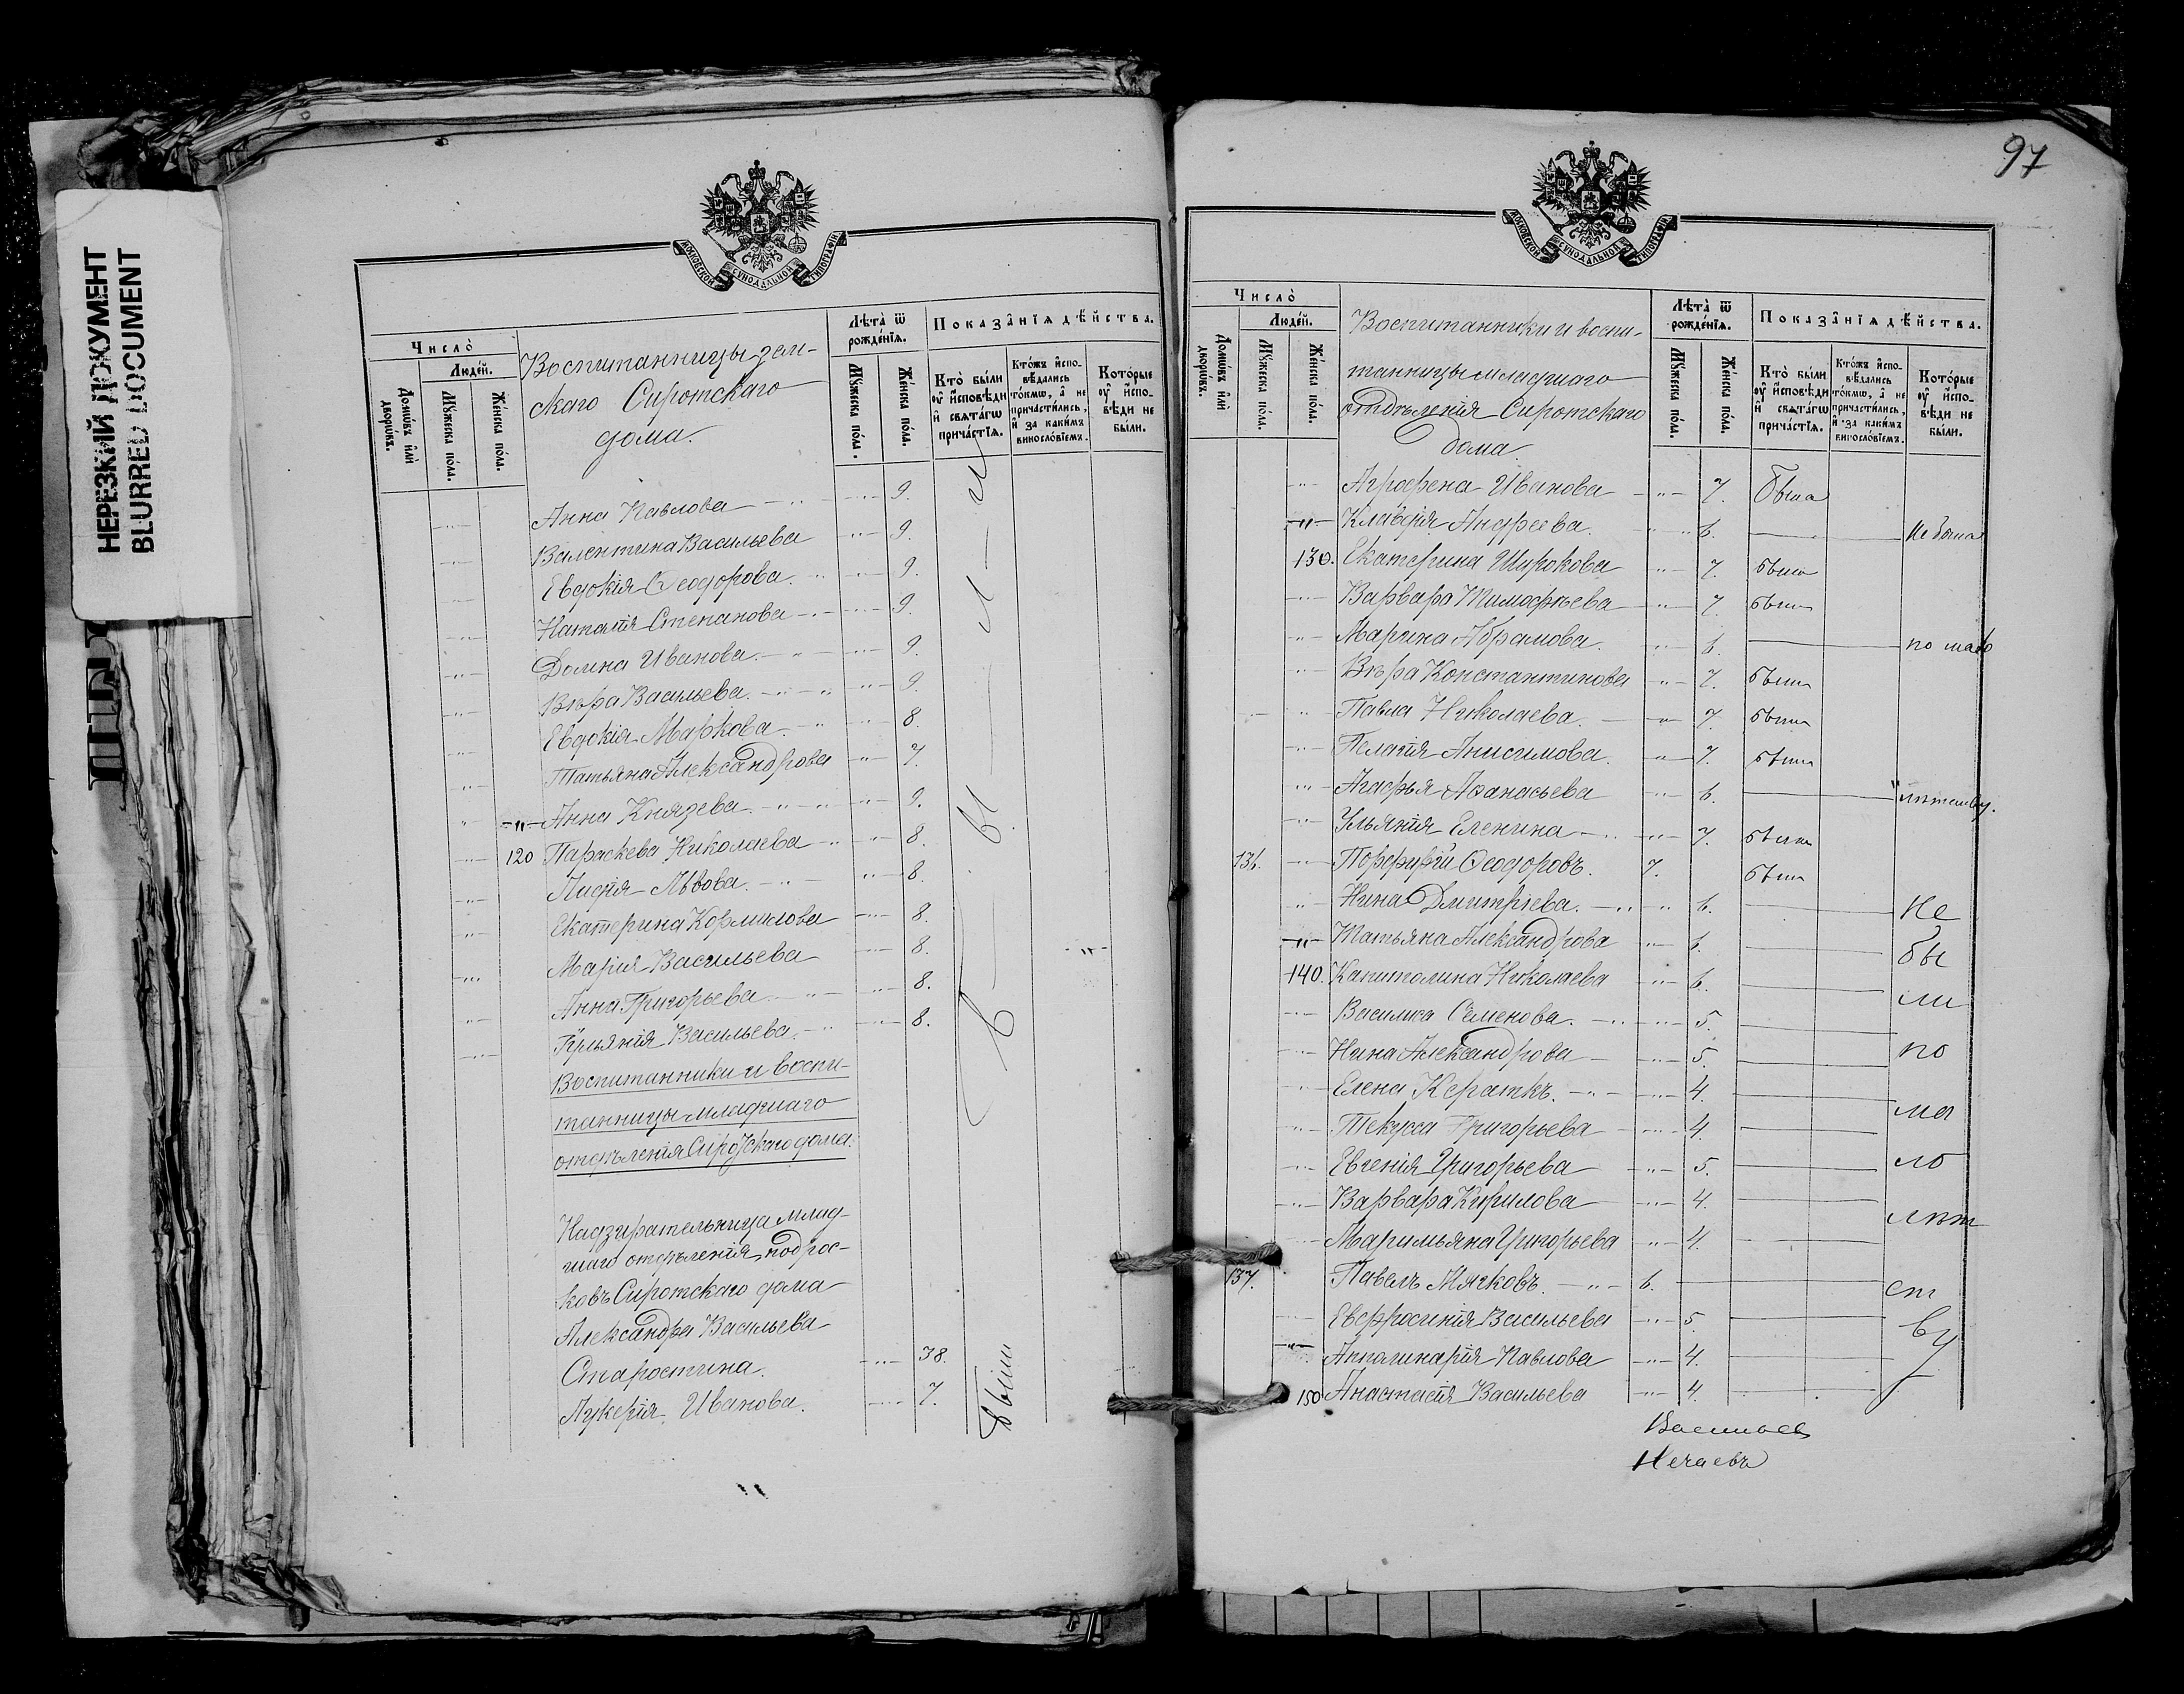 НЕРЕЗКИЙ ДОКУМЕНТ
BLURRED DOCUMENT
МОСКОВСКОЙ СѴНОДАЛЬНОЙ ТИПОГРАФІИ
Число̀
Людéй.
Домѡ́въ и҆лѝ дворѡ́въ.
Мꙋ́жеска по́ла.
Же́нска по́ла.
Воспитанницы зем-
скаго Сиротскаго
дома.
Лѣта̀ ѿ рожде́нїѧ.
Мꙋ́жеска по́ла.
Же́нска по́ла.
Показа̑нїѧ дѣ́йства.
Кто̀ бы́ли ᲂу҆ и҆сповѣди и҆ свѧта́гѡ прича́стїѧ.
Кто́жъ и҆сповѣ́дались то́кмѡ, а҆ не причасти́лись, и҆ за каки́мъ винословїемъ.
Кото́рые ᲂу҆ и҆сповѣди не бы́ли.
Анна Павлова 9.
Валентина Васильева 9.
Евдокія Ѳеодорова. 9.
Наталія Степанова 9.
Домна Иванова. 9.
Вѣра Васильева. 9.
Евдокія Маркова. 8.
Татьяна Александрова 7.
Анна Князева. 9.
120 Параскева Николаева 8.
Лидія Львова. 8.
Екатерина Кормилова 8.
Марія Васильева 8.
Анна Григорьева 8.
Васильева. 8.
Воспитанники и воспи-
танницы младшаго
отдѣленія Сиротскаго дома.
Надзирательница млад-
шаго отдѣленія, подрос-
ковъ Сиротскаго дома
Александра Васильева
Старостина. 38.
Лукерія Иванова. 7.
Были
97
МОСКОВСКОЙ СѴНОДАЛЬНОЙ ТИПОГРАФІИ
Число̀
Людéй.
Домѡ́въ и҆лѝ дворѡ́въ.
Мꙋ́жеска по́ла.
Же́нска по́ла.
Воспитанники и воспи-
танницы младшаго
отдѣленія Сиротскаго
дома.
Лѣта̀ ѿ рожде́нїѧ.
Мꙋ́жеска по́ла.
Же́нска по́ла.
Показа̑нїѧ дѣ́йства.
Кто̀ бы́ли ᲂу҆ и҆сповѣди и҆ свѧта́гѡ прича́стїѧ.
Кто́жъ и҆сповѣ́дались то́кмѡ, а҆ не причасти́лись, и҆ за каки́мъ винословїемъ.
Кото́рые ᲂу҆ и҆сповѣди не бы́ли.
Агрофена Иванова 7. была
Клавдія Андреева. 6. не была
130. Екатерина Широкова 7. была
Варвара Тимофѣева 7. была
Марина Абрамова. 6. по мало
Вѣра Константинова 7. была
Павла Николаева. 7. была
Пелагія Анисимова. 7. была
Агафья Аѳанасьева 6. лѣтству.
Ульянія Еленина 7. была
136. Порфирій Ѳеодоровъ. 7. был
Нина Дмитріева. 6. не
Татьяна Александрова 6. бы
140. Капитолина Николаева 6. ли
Василиса Семенова. 5.
Нина Александрова 5. по
Елена Кераткъ. 4.
Текусса Григорьева 4. ма
Евгенія Григорьева 5. ло
Варвара Кирилова 4.
Маримьяна Григорьева 4. лѣт
137. Павелъ Мячковъ. 6. ст
Евфросинія Васильева 5. ву
Апполинарія Павлова 4.
150 Анастасія Васильева 4.
Васильевъ
Нечаевъ